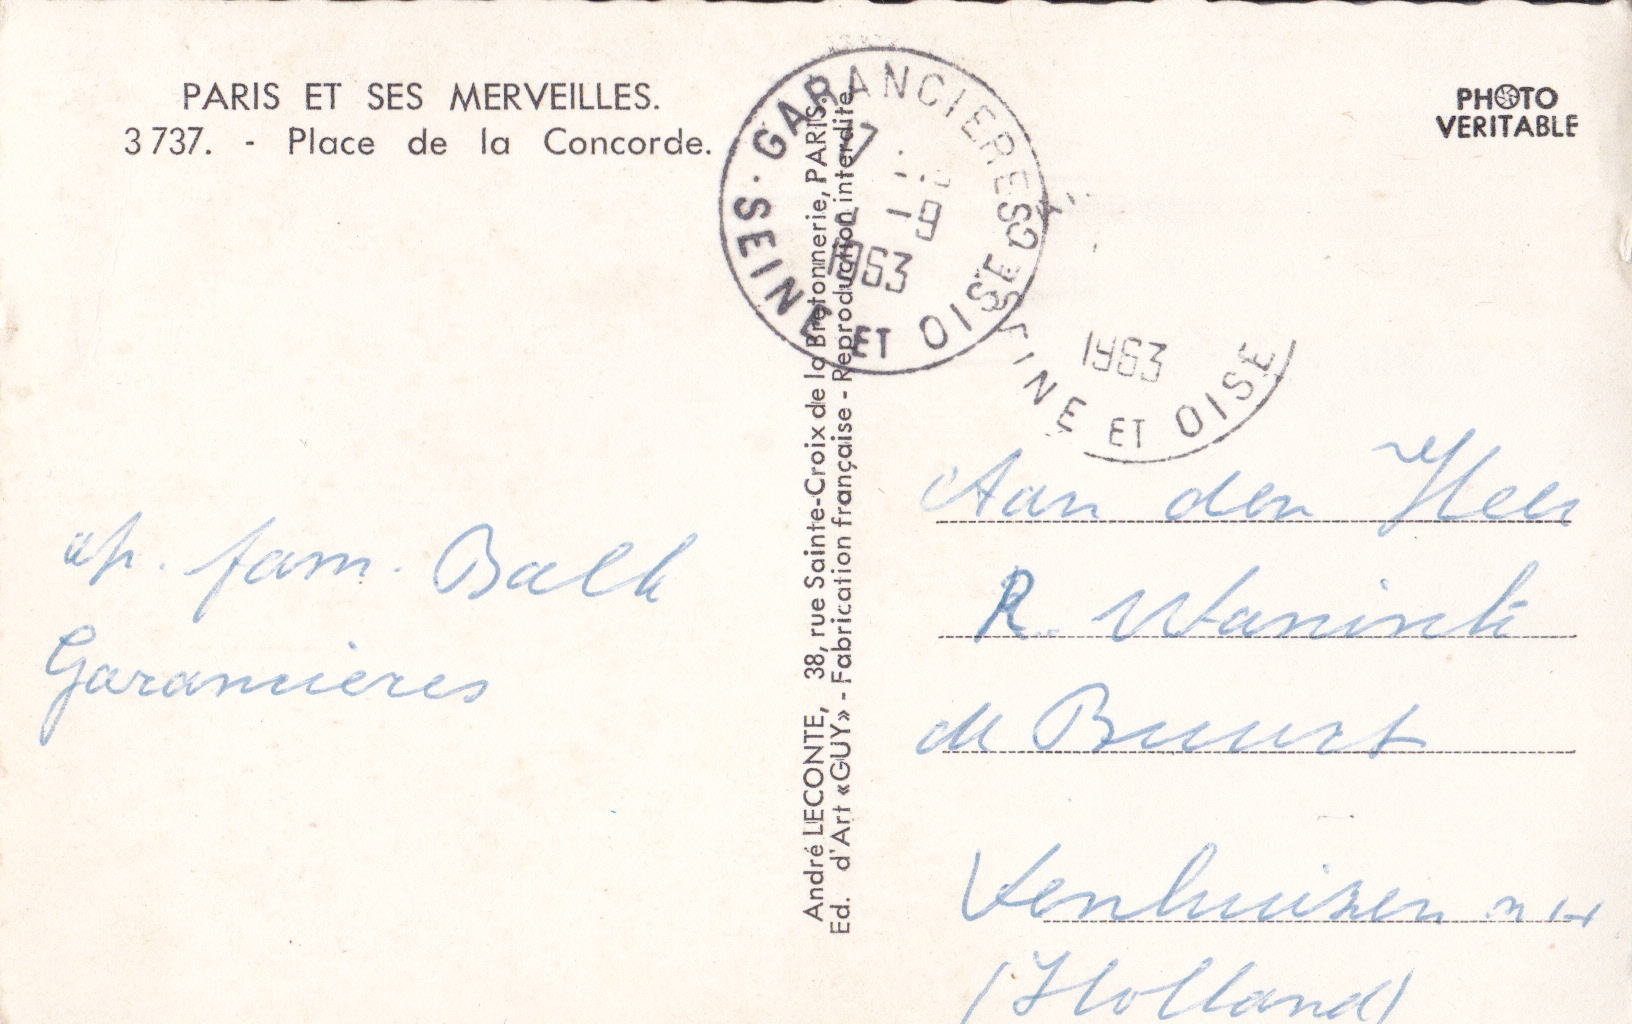 PARIS ET SES MERVEILLES.
3 737. - Place de la Concorde.
PHOTO
VERITABLE
GARANCIERES
SEINE ET OISE
-9
1963
SEINE ET OISE
1963
André LECONTE, 38, rue Sainte-Croix de la Bretonnerie, PARIS.
Ed. d'Art «GUY» - Fabrication française - Reproduction interdite.
fam. Balk
Garancieres
Aan den Heer
R. Wanink
de Buurt
Venhuizen N H
(Holland)